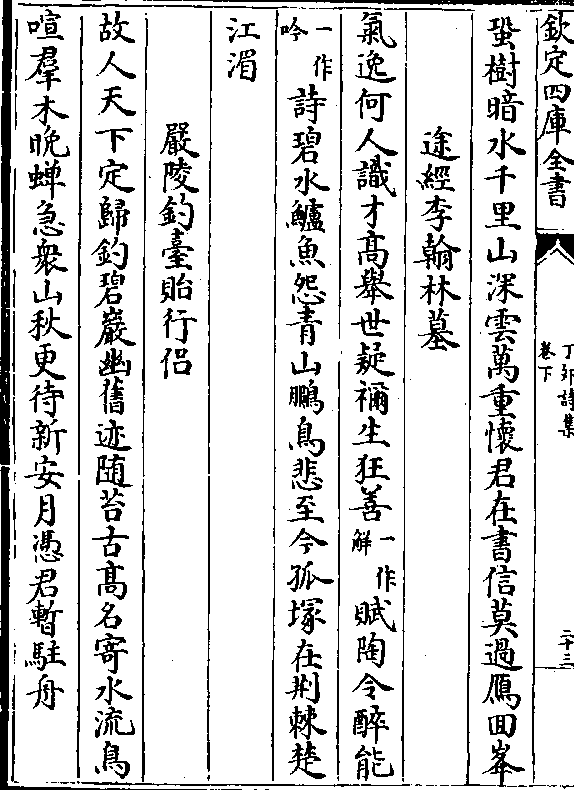 欽定四庫全書
丁卯詩集
卷下
二十三
蛩樹暗水千里山深雲萬重懷君在書信莫過鴈回峯
途經李翰林墓
氣逸何人識才高舉世疑禰生狂善一作解賦陶令醉能
一作吟詩碧水鱸魚怨青山鵩鳥悲至今孤塚在荆棘楚
江湄
嚴陵釣臺貽行侣
故人天下定歸釣碧巖幽舊迹随苔古高名寄水流鳥
喧羣木晚蝉急衆山秋更待新安月憑君暫駐舟